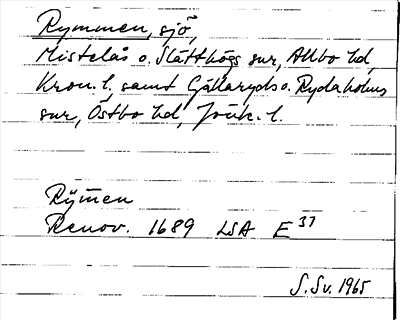 Rymmen, sjö,
Mistelås o. Slätthögs snr, Allbo hd,
Kron. l., samt Gällaryds o. Rydaholms
snr, Östbo hd, Jönk. l.
Rÿmen
Renov. 1689 LSA E 37
S. Sv. 1965